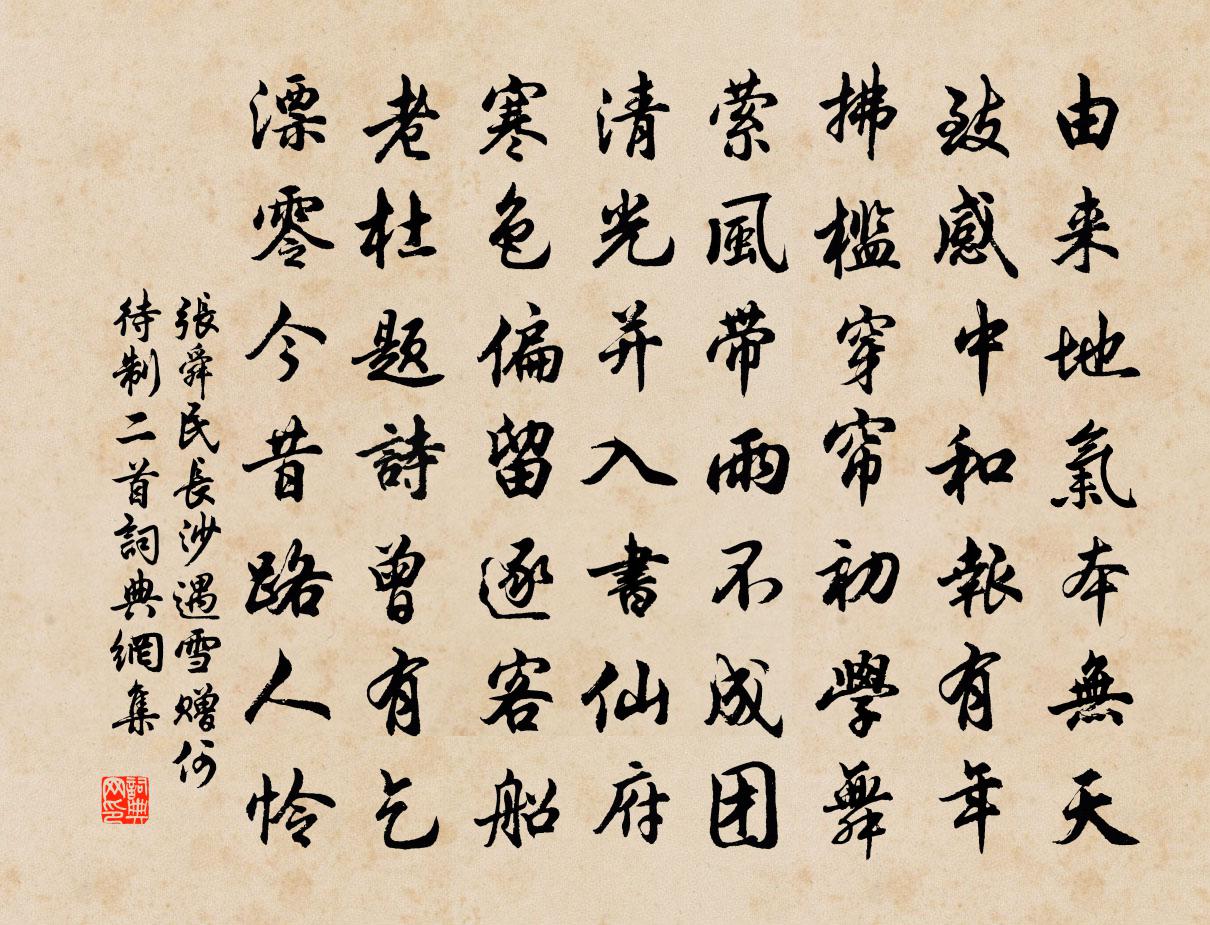 由来地氣本無天
致感中和報有年
拂檻穿帘初學舞
萦風带雨不成团
清光并入書仙府
寒色偏留逐客船
老杜题詩曾有乞
漂零今昔路人怜
張舜民長沙遇雪赠何
待制二首詞典網集
詞典网印